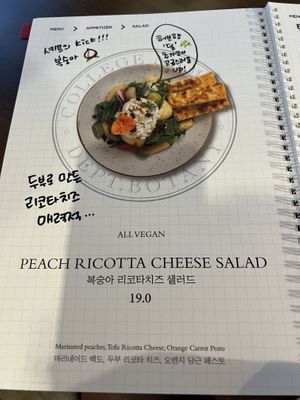 MENU > APPETIZER > SALAD
셰프의 kick!!!
복숭아
허브
'딜'
추가해
up!
COLLEGE
DEPT. BOTANY
두부로 만든
리코타치즈
매력적...
ALL VEGAN
PEACH RICOTTA CHEESE SALAD
복숭아 리코타치즈 샐러드
19.0
Marinated peaches, Tofu Ricotta Cheese, Orange Carrot Pesto
마리네이드 백도, 두부 리코타 치즈, 오렌지 당근 페스토